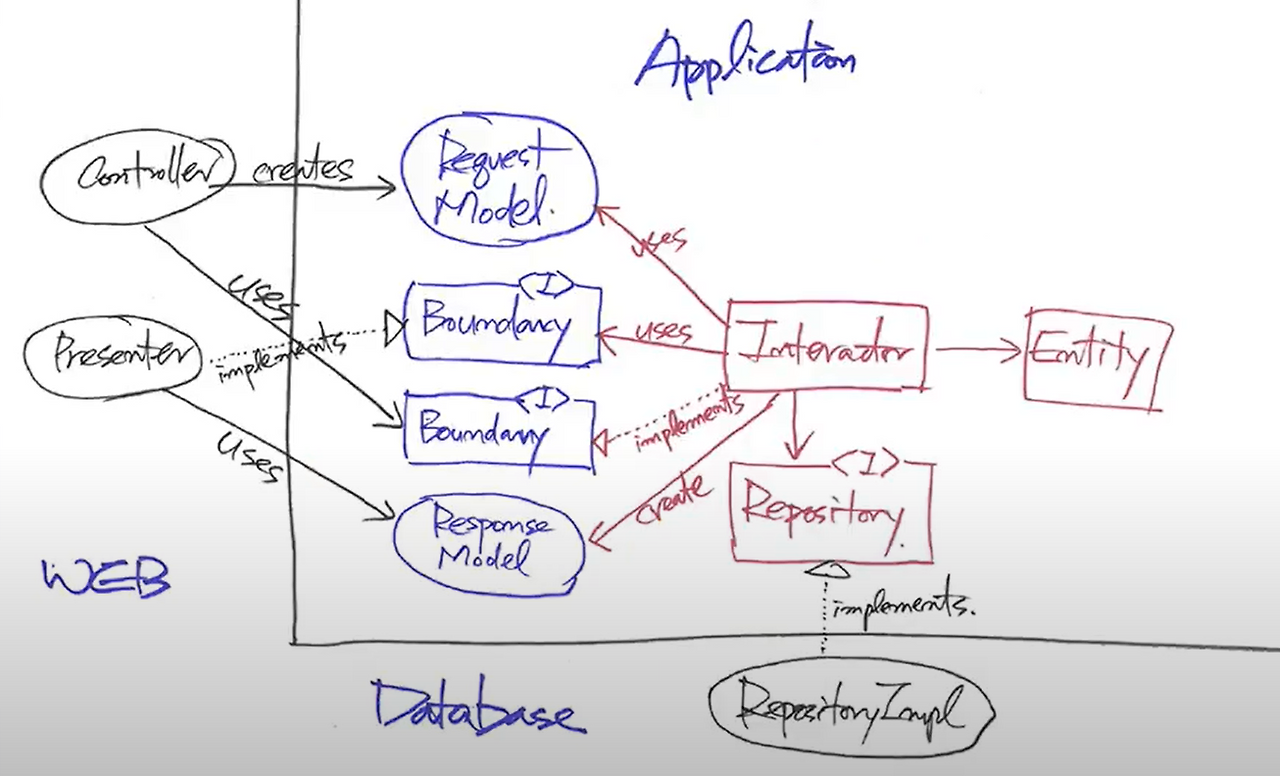 Application
Controller
creates
Request
Model.
uses
uses
<I>
Boundary
uses
Interador
Entity
Presenter
implements
<I>
Boundary
implements
uses
create
<I>
Repository.
Response
Model
WEB
implements.
Database
RepositoryImpl